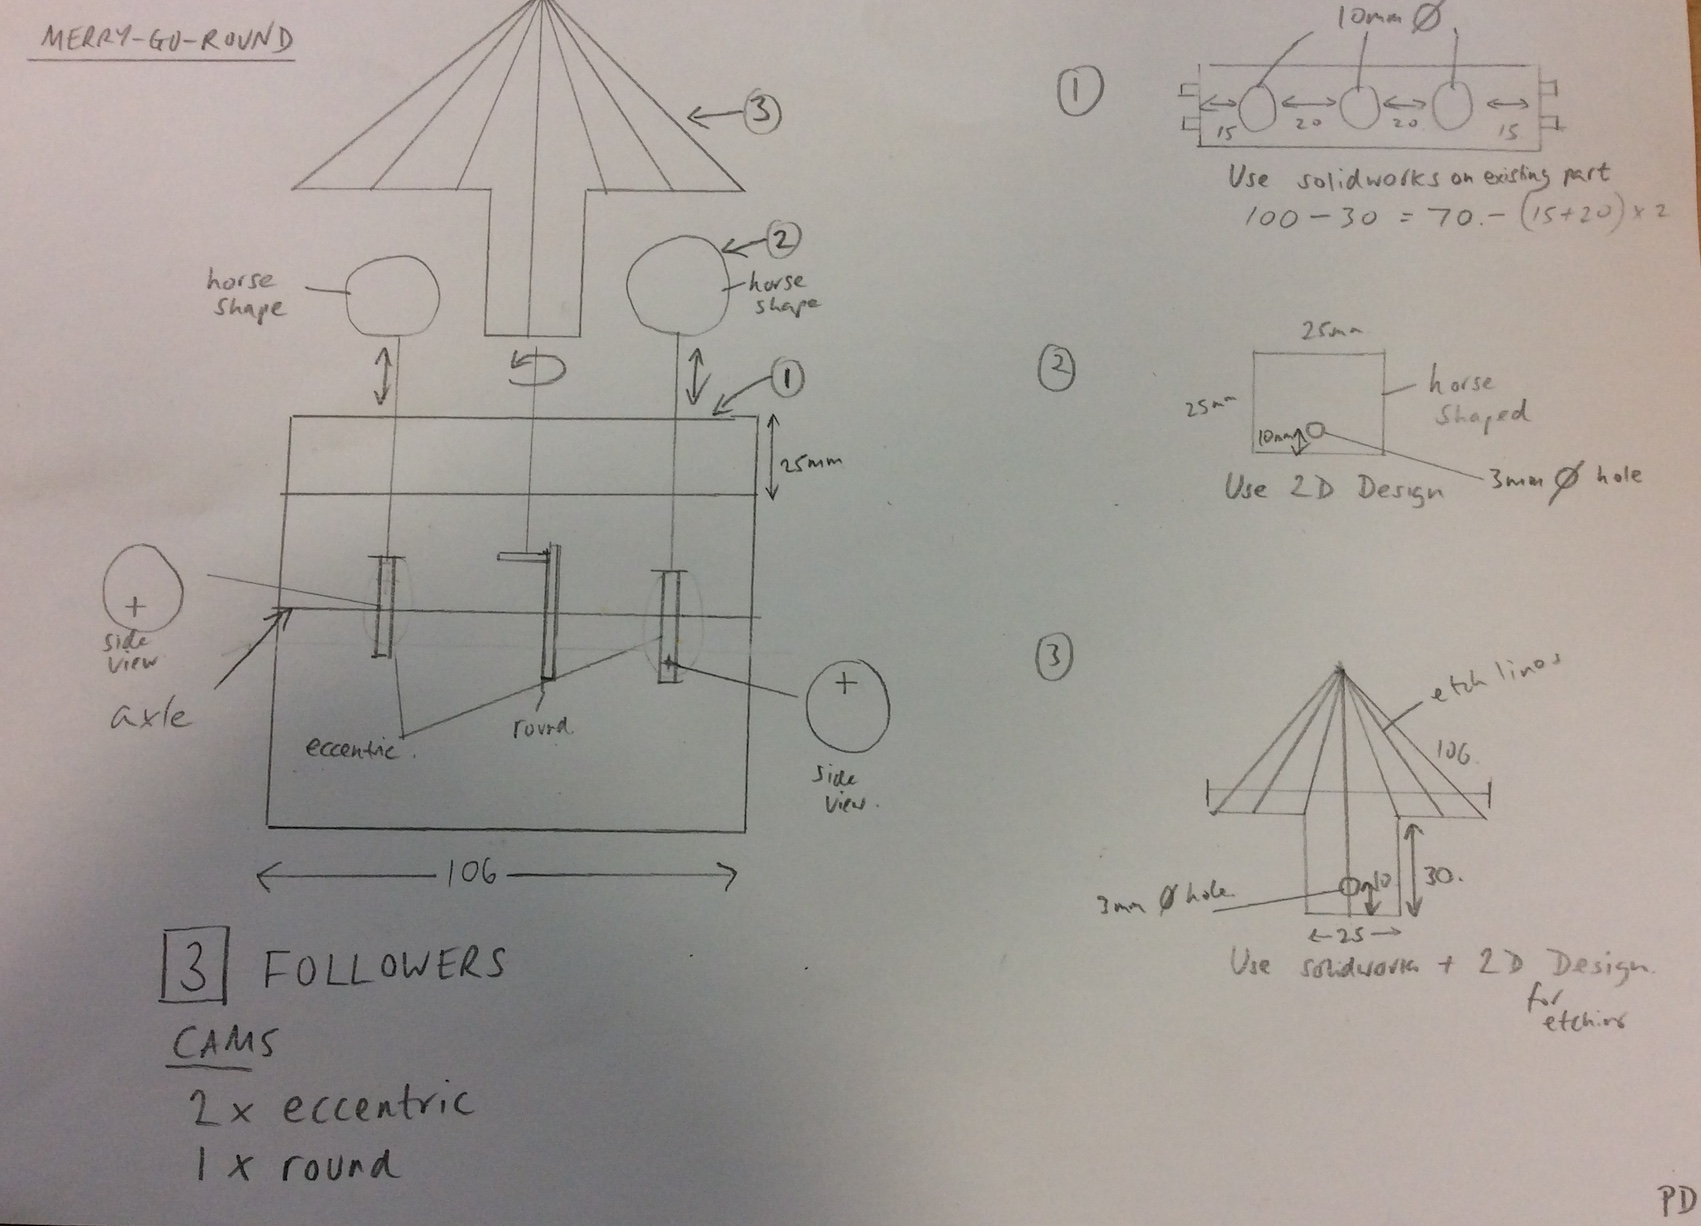 MERRY-GO-ROUND
3
2
horse
shape
horse
shape
1
25mm
side
view
axle
eccentric.
round.
side
view.
106
3 FOLLOWERS
CAMS
2 x eccentric
1 x round
1
10mm Ø
15
20
20
15
Use solidworks on existing part
100 - 30 = 70. - (15+20) x 2
2
25mm
25mm
horse
shaped
10mm
3mm Ø hole
Use 2D Design
3
etch lines
106
3mm Ø hole
10
30.
25
Use solidworks + 2D Design.
for
etching
PD